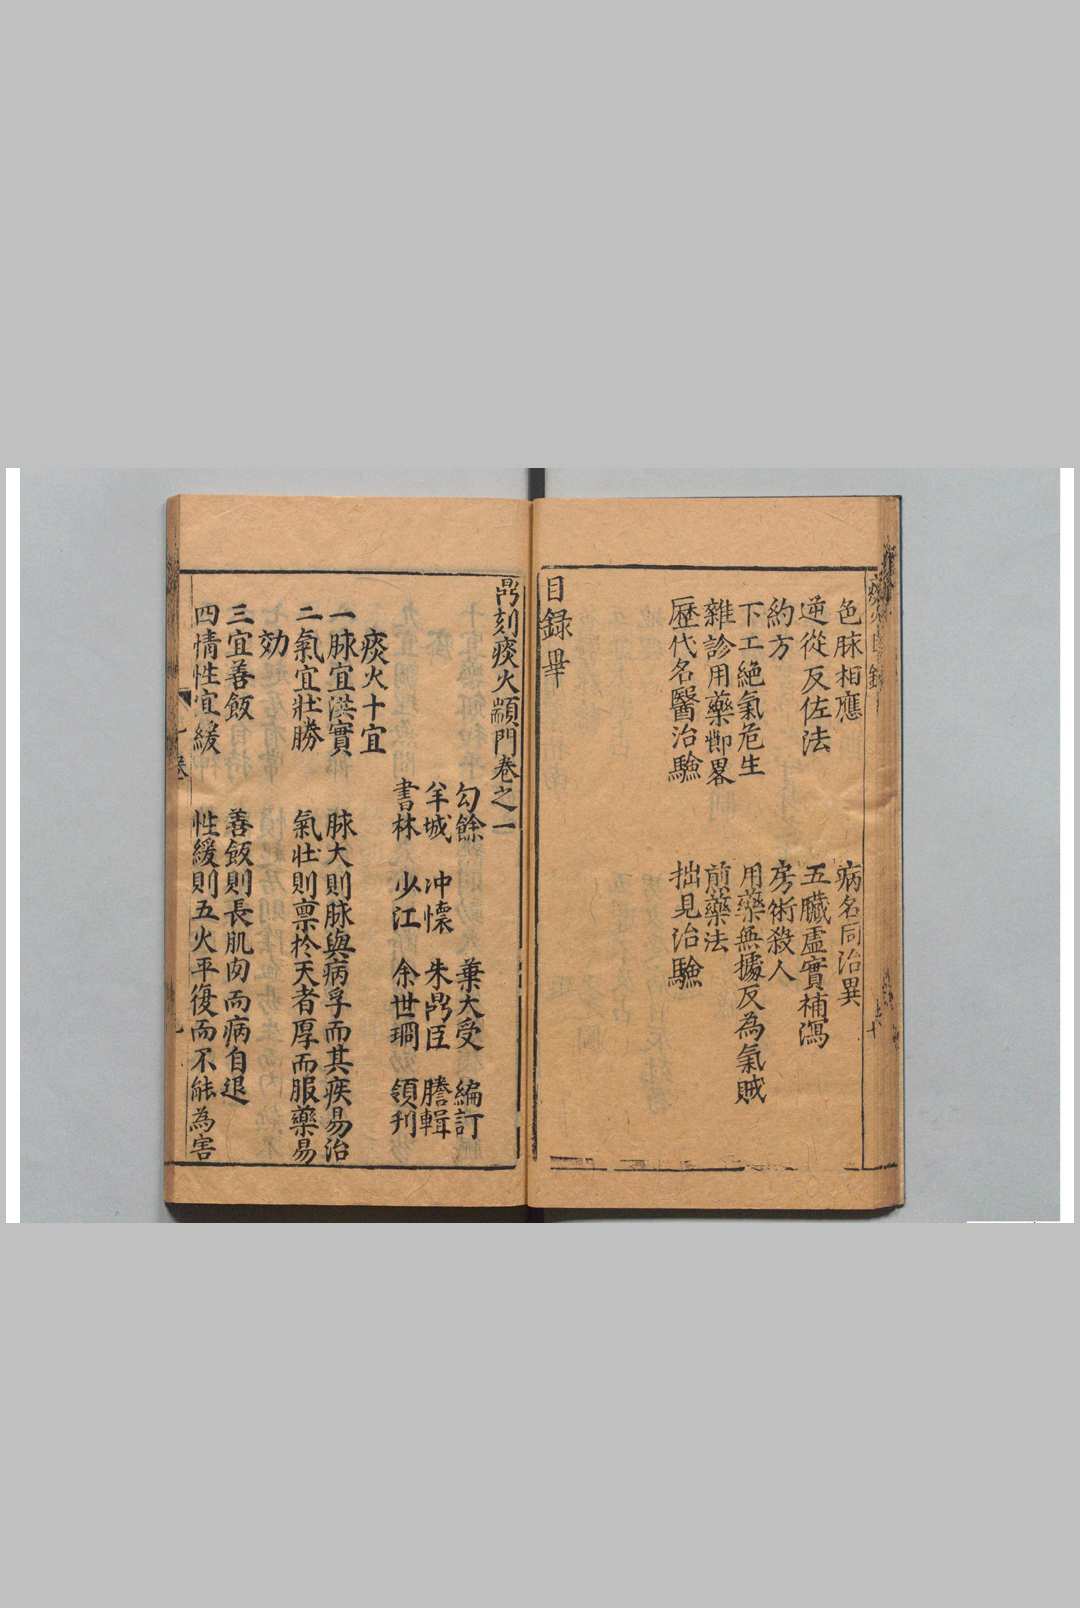 色脉相應　病名同治異
逆從反佐法　五臟虛實補瀉
約方　房術殺人
下工絕氣危生　用藥無據反為氣賊
雜診用藥節畧　煎藥法
歷代名醫治驗　拙見治驗
目錄畢
鼎刻痰火顓門卷之一
勾餘　葉大受　編訂
羊城　冲懷　朱鼎臣　謄輯
書林　少江　余世琱　領刋
痰火十宜
一脉宜洪實　脉大則脉與病孚而其疾易治
二氣宜壯勝　氣壯則稟於天者厚而服藥易
効
三宜善飯　善飯則長肌肉而病自退
四情性宜緩　性緩則五火平復而不能為害